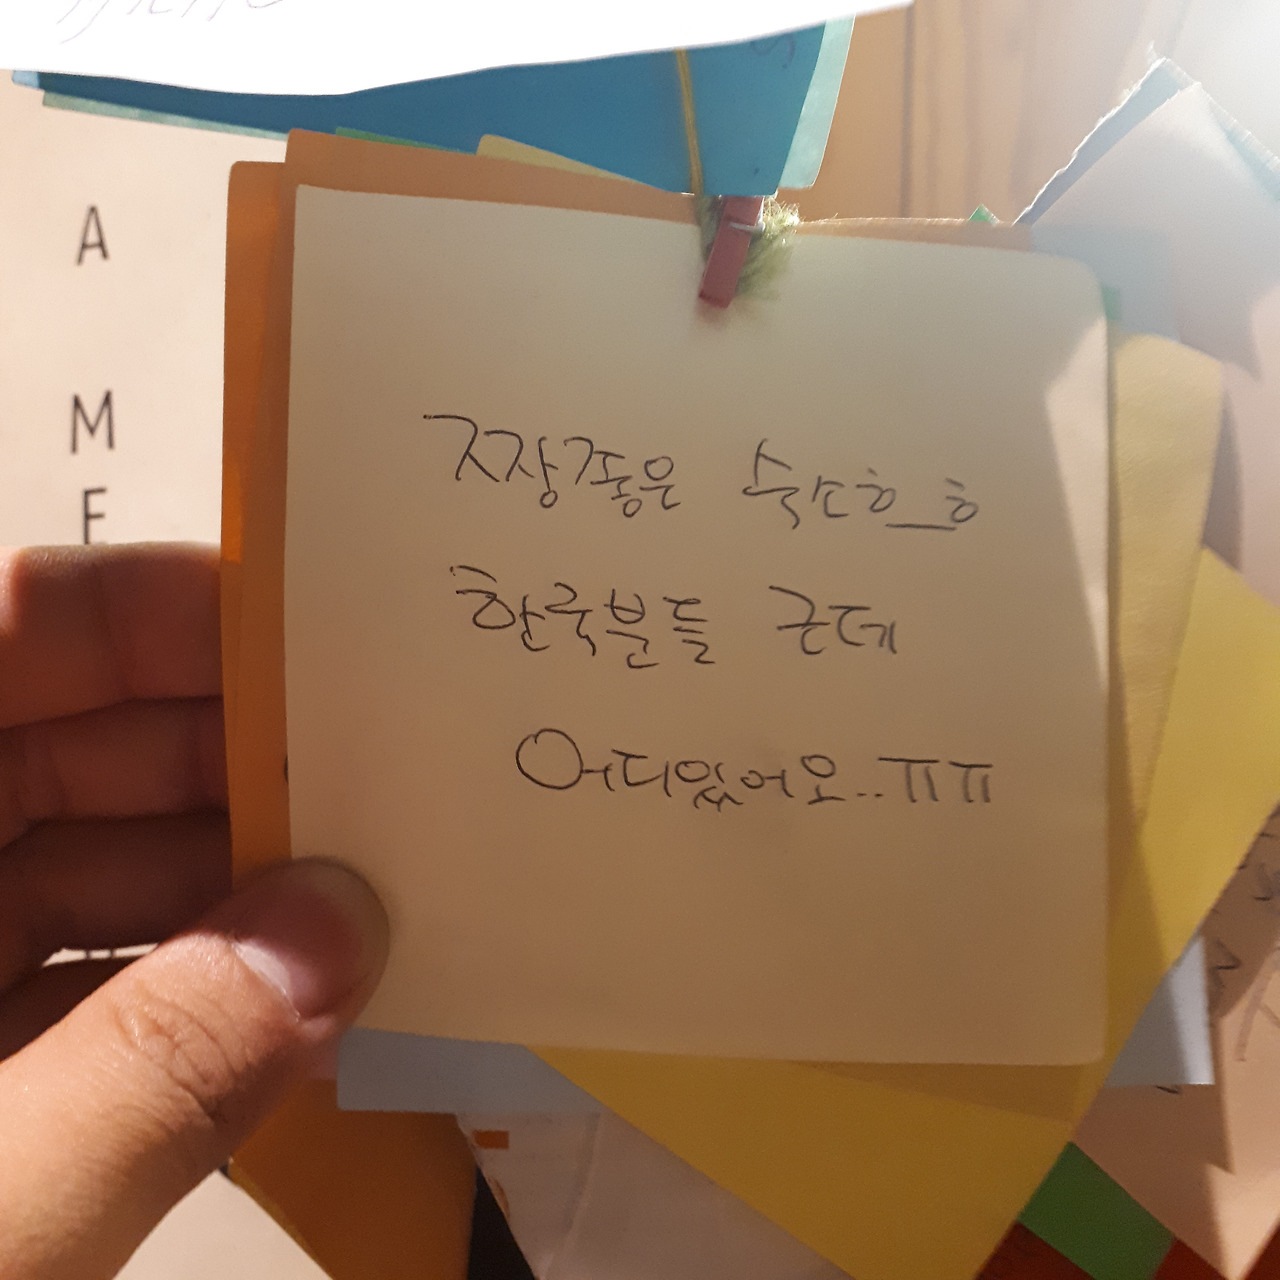 A
M
E
ㅈ장ㄱ좋은 숙소ㅎ_ㅎ
한국분들 근데
어디있어요..ㅠㅠ